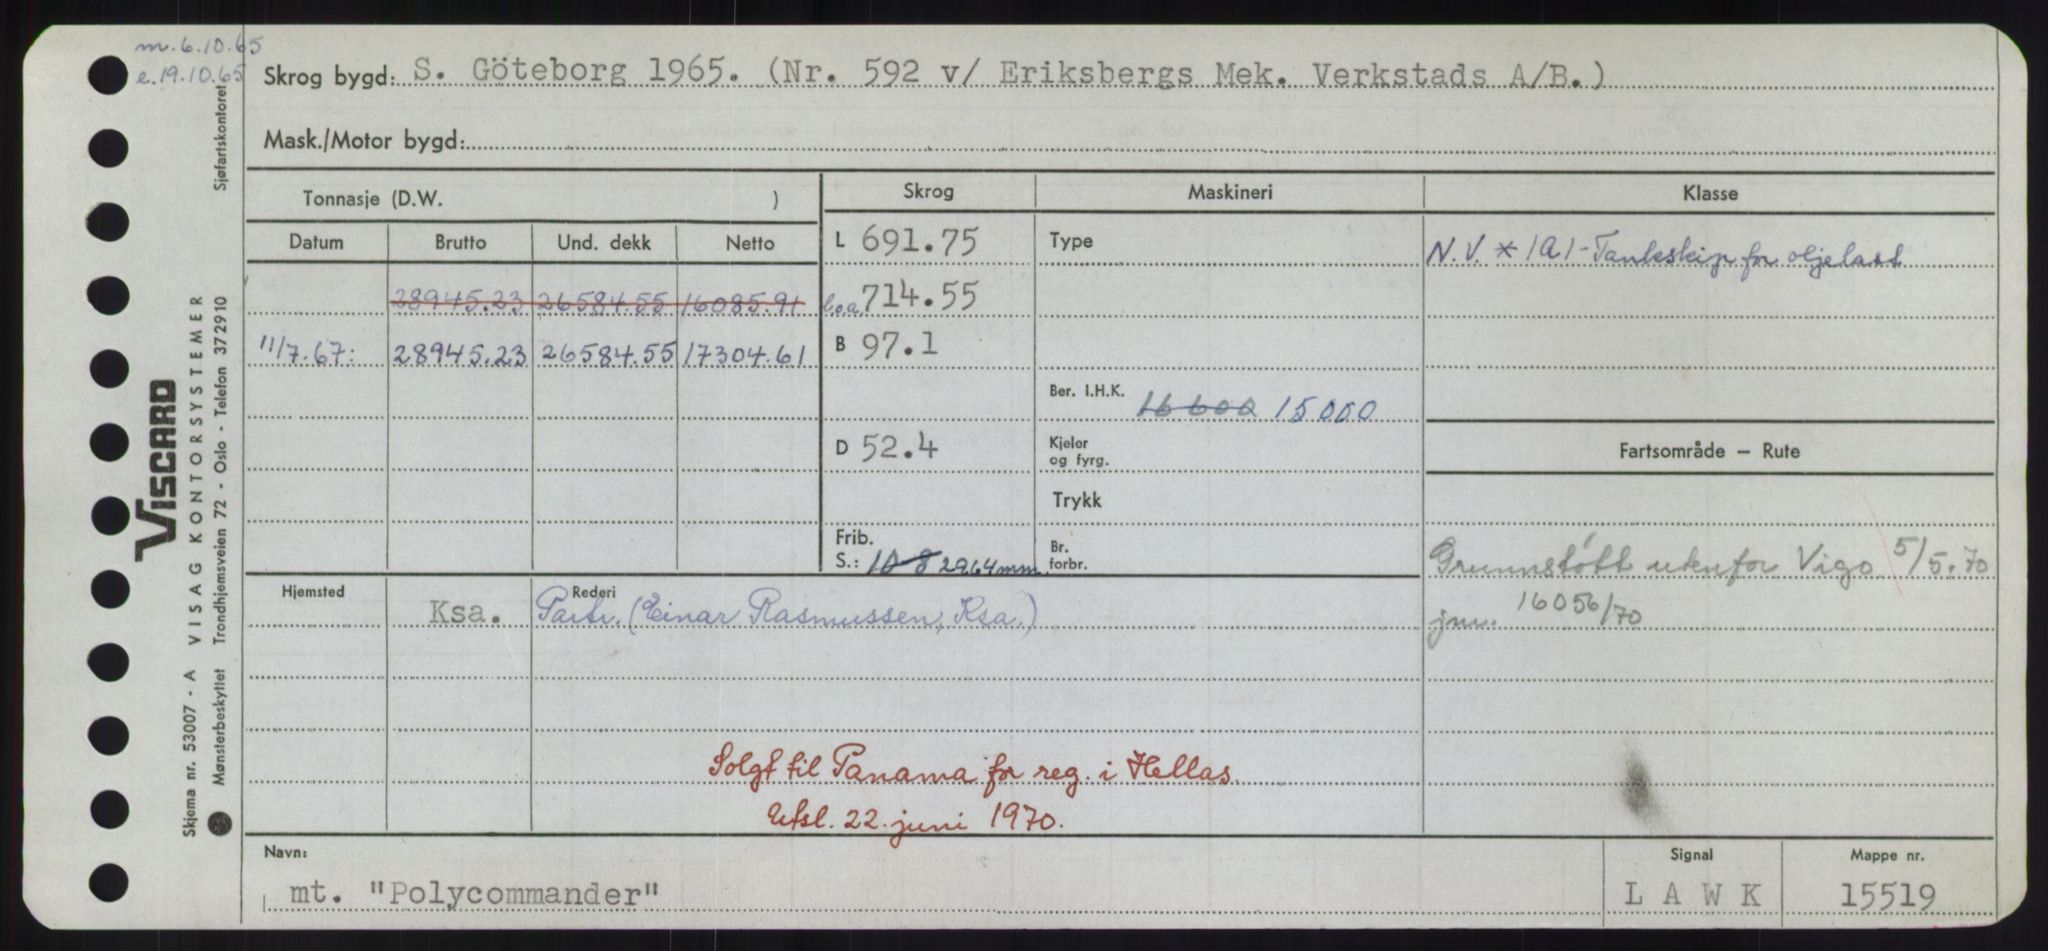 m. 6.10.65
e. 19.10.65
Skrog bygd: S. Göteborg 1965. (Nr. 592 v/ Eriksbergs Mek. Verkstads A/B.)
Mask./Motor bygd:
Tonnasje (D.W. )
Skrog
Maskineri
Klasse
Datum Brutto Und. dekk Netto
L 691.75
Type
N.V. * 1A1 - Tankskip for oljelast
28945.23 26584.55 16085.91
l.o.a. 714.55
11/7.67: 28945.23 26584.55 17304.61
B 97.1
Ber. I.H.K. 16 600 15000
D 52.4
Kjeler og fyrg.
Fartsområde – Rute
Trykk
Frib. S.: 10-8 2964mm
Br. forbr.
Grunnstøtt utenfor Vigo 5/5.70
jnr. 16056/70
Hjemsted
Rederi
Ksa. Partr. (Einar Rasmussen, Ksa.)
Solgt til Panama for reg. i Hellas.
Utsl. 22. juni 1970.
Navn:
mt. "Polycommander"
Signal
L A W K
Mappe nr.
15519
Skjema nr. 53007 - A VISAG KONTORSYSTEMER Sjøfartskontoret
Mønsterbeskyttet Trondhjemsveien 72 - Oslo - Telefon 372910
VISCARD